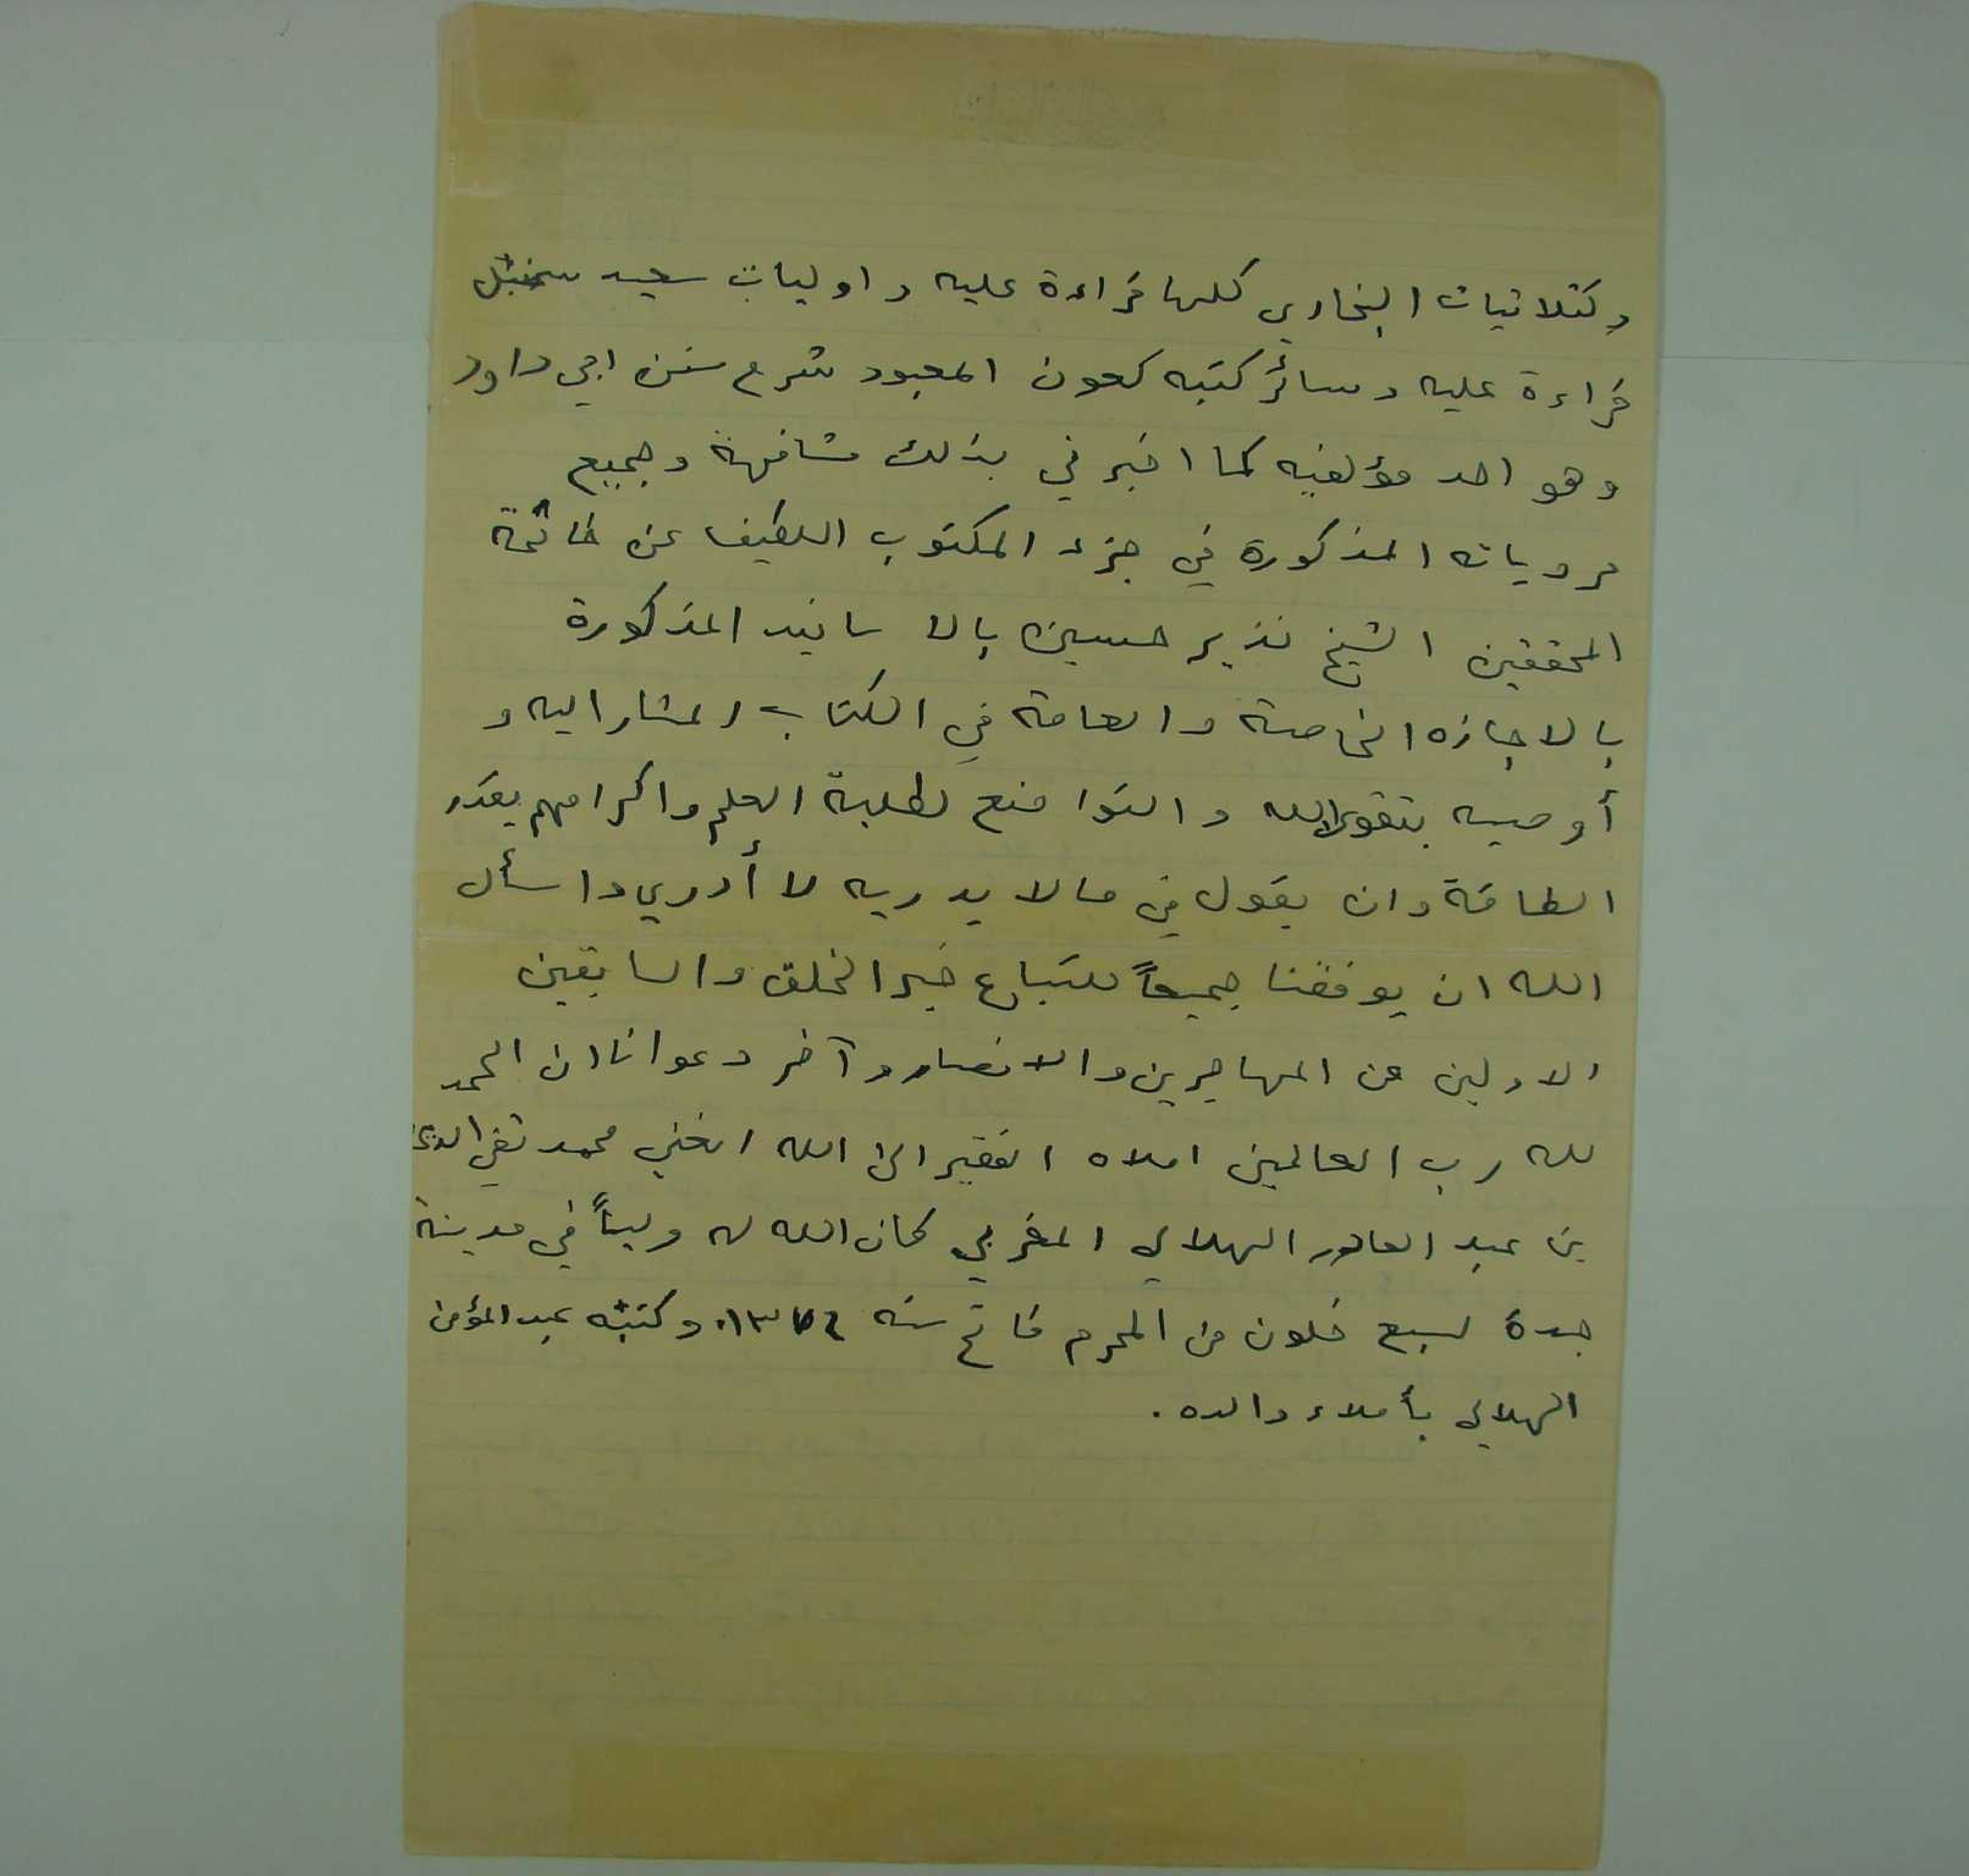 وكثلاثيات البخاري كلها قراءة عليه واوليات سعيد سنبل
قراءة عليه وسائر كتبه كعون المعبود شرح سنن ابي داود
وهو احد مؤلفيه كما اخبرني بذلك مشافهة وجميع
مروياته المذكورة في جزء المكتوب اللطيف عن خاتمة
المحققين الشيخ نذير حسين بالاسانيد المذكورة
بالاجازه الخاصة والعامة في الكتاب المشار اليه و
أوصيه بتقوى الله والتواضع لطلبة العلم واكرامهم بقدر
الطاقة وان يقول في مالا يدريه لا أدري واسأل
الله ان يوفقنا جميعاً للتباع خير الخلق والسابقين
الاولين من المهاجرين والانصار وآخر دعوانا ان الحمد
لله رب العالمين املاه الفقير الى الله الغني محمد تقي الدين
بن عبد القادر الهلالي المغربي كان الله له ولياً في مدينة
جدة لسبع خلون من المحرم فاتح سنه وكتبه عبد المؤمن
الهلالي بأملاء والده.